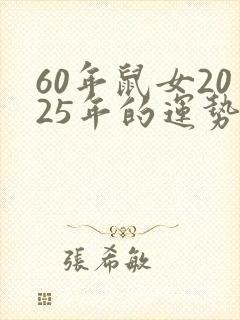 60年鼠女20
25年的運勢
張希敏